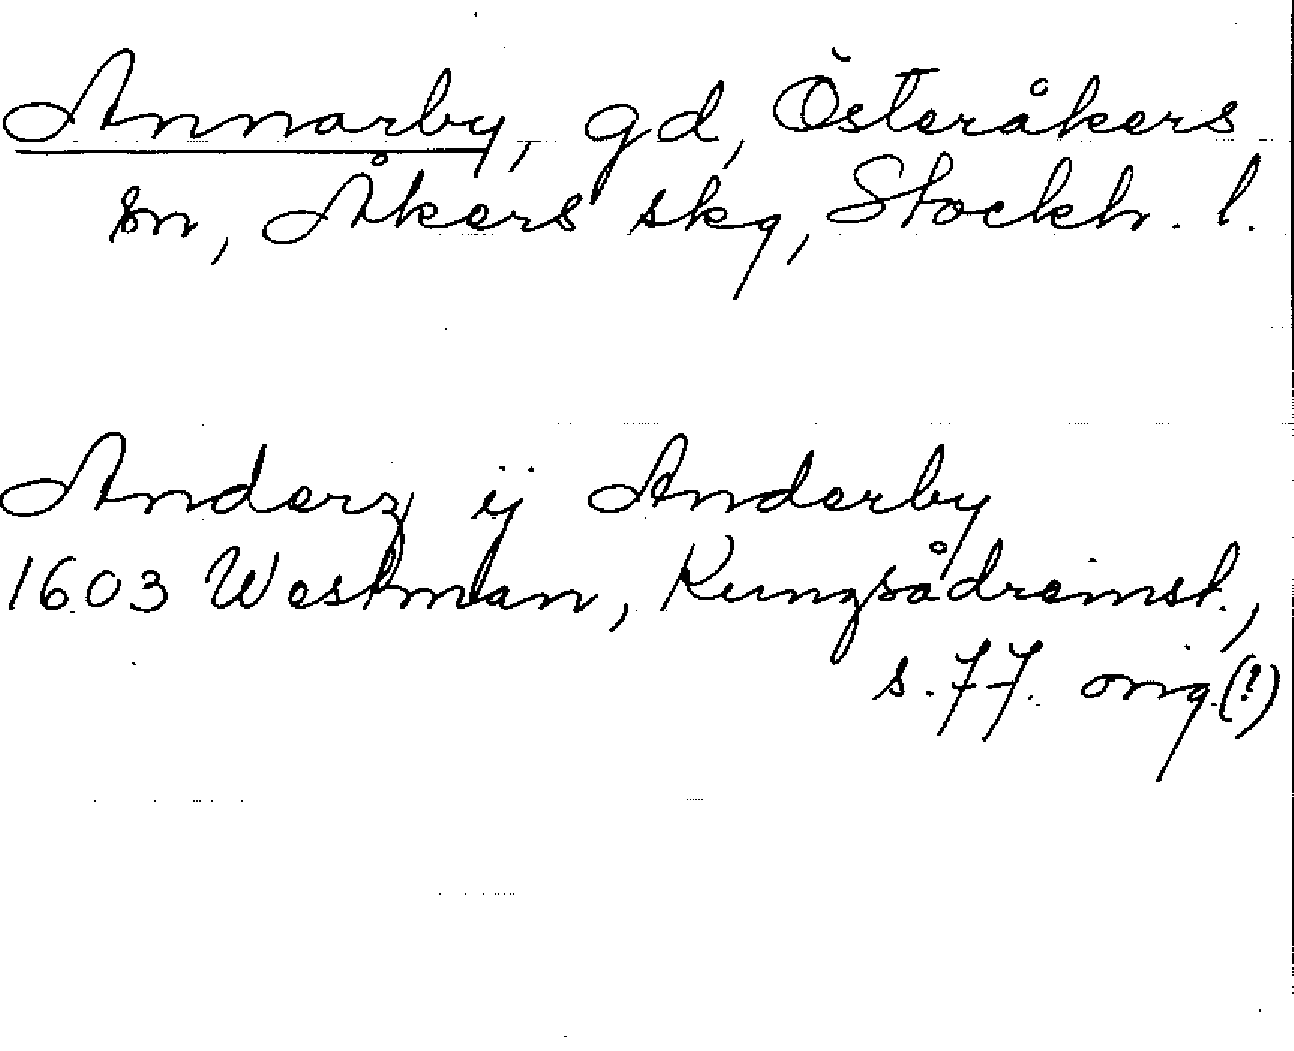 Annarby, gd, Österåkers
sn, Åkers skg, Stockh. l.
Anderz ij Anderby
1603 Westman, Kungsådreinst.,
s. 77. orig (!)